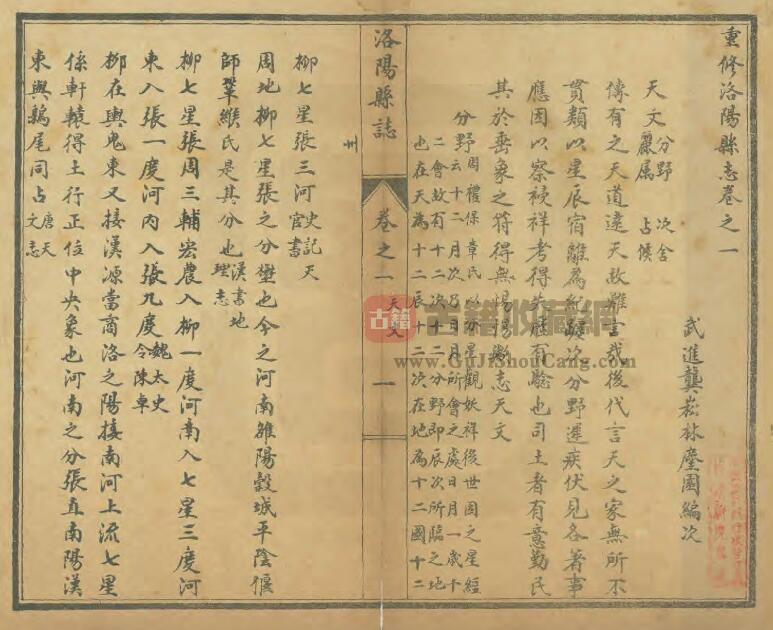 重修洛陽縣志卷之一
武進龔崧林麈園編次
天文 分野 次舍 麗属 占候
傳有之天道遠天故難言哉後代言天之家無所不
貫類以星辰宿離為紀躔次分野遲疾伏見各著事
應因以察祲祥考得失應有驗也司土者有意勤民
其於垂象之符得無惕惕歟志天文
分野 周禮保章氏以分星觀妖祥後世因之星經
云十二月次乃日月所會之處日月一歲十
二會故有十二次十二分野即辰次所臨之地
也在天為十二辰十二次在地為十二國十二
洛陽縣誌 卷之一 天文 一
州
柳七星張三河 史記天官書
周地柳七星張之分壄也今之河南雒陽穀城平陰偃
師鞏緱氏是其分也 漢書地理志
柳七星張周三輔宏農入柳一度河南入七星三度河
東入張一度河内入張九度 魏太史令陳卓
柳在輿鬼東又接漢源當商洛之陽接南河上流七星
係軒轅得土行正位中央象也河南之分張直南陽漢
東與鶉尾同占 唐天文志
古籍 古籍收藏網
www.GuJiShouCang.com